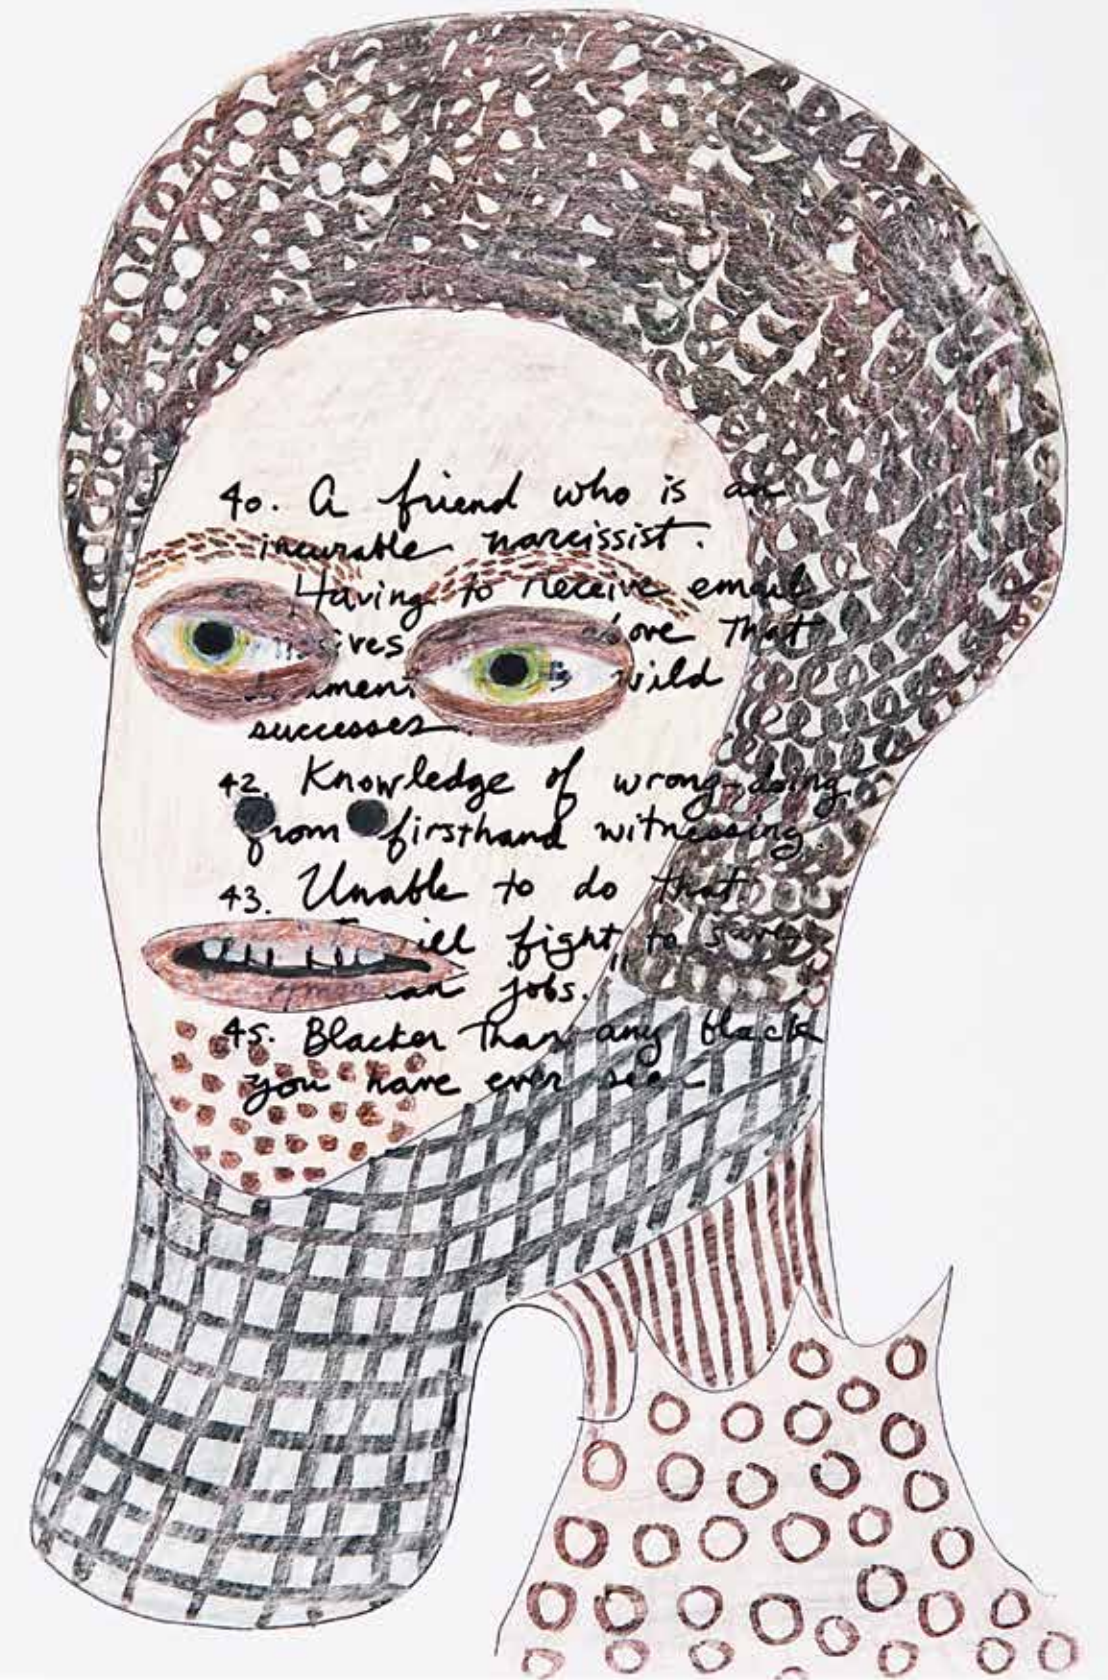 40. A friend who is an
incurable narcissist.
Having to receive email
ove that
wild
successes
42. Knowledge of wrong-doing
from firsthand witnessing.
43. Unable to do that
ill fight to save
an jobs.
45. Blacker than any black
you have ever seen